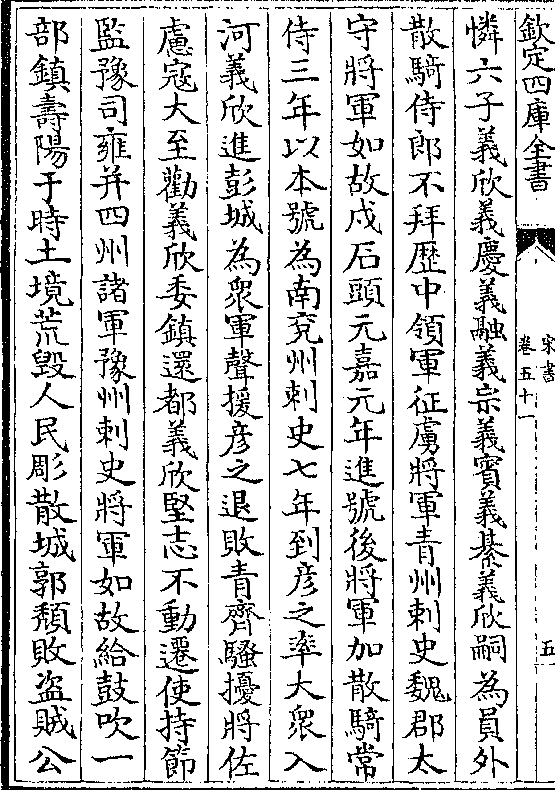 欽定四庫全書
宋書
卷五十一
五
憐六子義欣義慶義融義宗義賓義綦義欣嗣為員外
散騎侍郎不拜歴中領軍征虜將軍青州刺史魏郡太
守將軍如故戍石頭元嘉元年進號後將軍加散騎常
侍三年以本號為南兗州刺史七年到彦之率大衆入
河義欣進彭城為衆軍聲援彦之退敗青齊騷擾將佐
慮冦大至勸義欣委鎮還都義欣堅志不動遷使持節
監豫司雍并四州諸軍豫州刺史將軍如故給鼓吹一
部鎮壽陽于時土境荒毁人民彫散城郭頽敗盗賊公